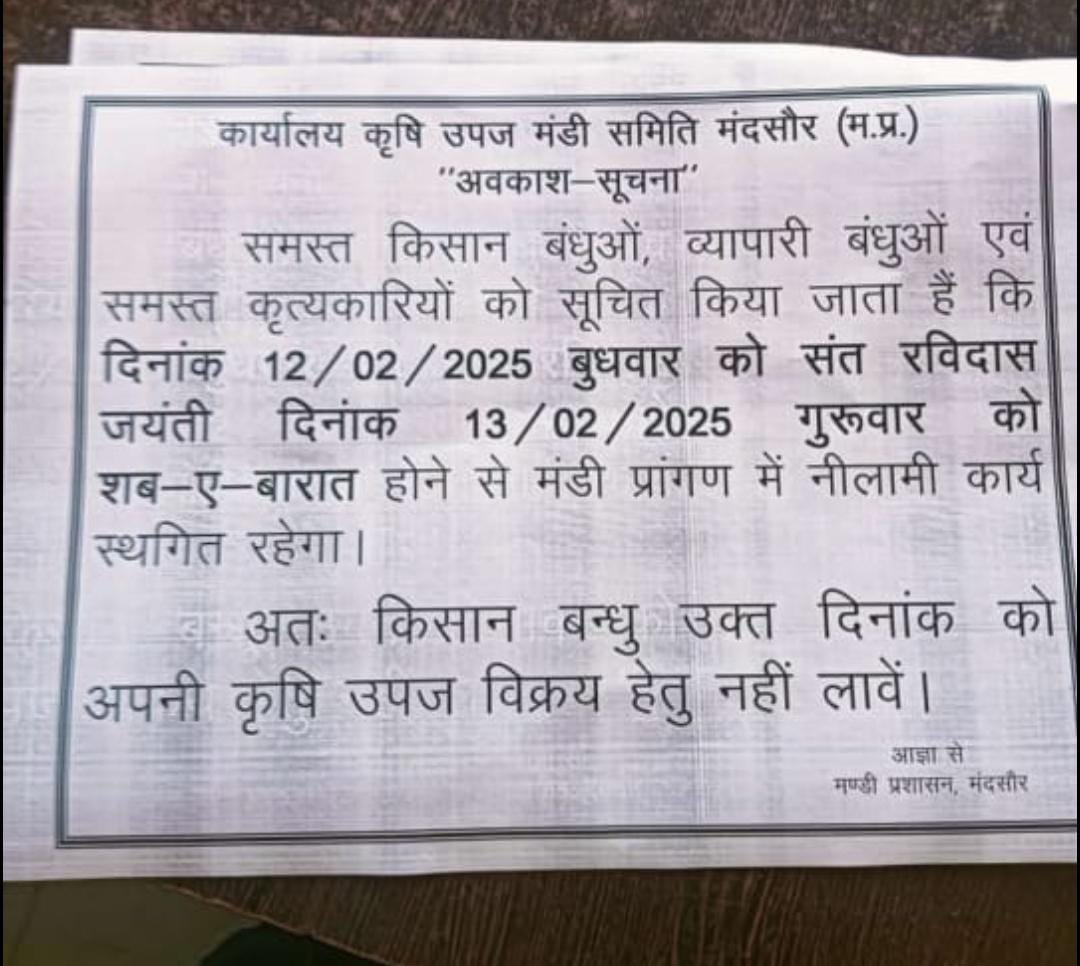 कार्यालय कृषि उपज मंडी समिति मंदसौर (म.प्र.)
"अवकाश–सूचना"
समस्त किसान बंधुओं, व्यापारी बंधुओं एवं
समस्त कृत्यकारियों को सूचित किया जाता हैं कि
दिनांक 12/02/2025 बुधवार को संत रविदास
जयंती दिनांक 13/02/2025 गुरूवार को
शब–ए–बारात होने से मंडी प्रांगण में नीलामी कार्य
स्थगित रहेगा।
अतः किसान बन्धु उक्त दिनांक को
अपनी कृषि उपज विक्रय हेतु नहीं लावें।
आज्ञा से
मण्डी प्रशासन, मंदसौर